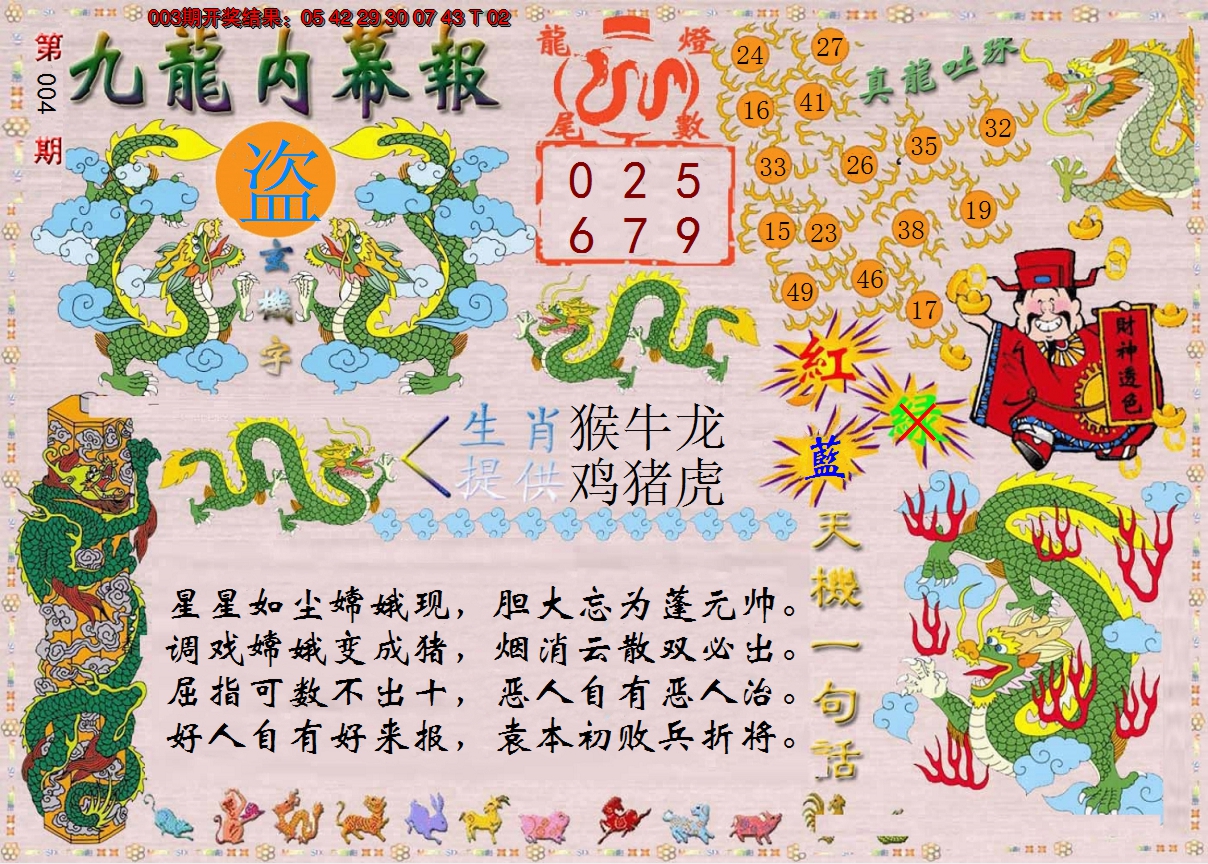 003期开奖结果：05 42 29 30 07 43 T 02
第004期
九龍内幕報
盗
玄機字
龍燈
尾數
0 2 5
6 7 9
真龍吐珠
24 27
16 41
35 32
33 26
19
15 23 38
46
49 17
紅
绿
藍
財神透色
生肖 猴牛龙
提供 鸡猪虎
天機一句話
星星如尘嫦娥现，胆大忘为蓬元帅。
调戏嫦娥变成猪，烟消云散双必出。
屈指可数不出十，恶人自有恶人治。
好人自有好来报，袁本初败兵折将。